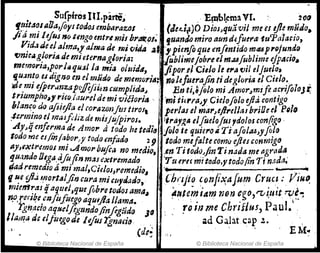 Suspiros III. parte,
quitaos allà, soys todos embarazos
si à mi Iesus no tengo entre mis braços.
Vida de el alma, y alma de mi vida
vnica gloria de mi eterna gloria:
memoria, por la qual la mia oluida,
quanto es digno en el mũdo de memoria:
de mi esperança possession cumplida,
triumpho, y rico laurel de mi victoria
blanco do assiesta el corazon sus tiros,
termino el mas feliz de mis suspiros.
Ay, q̃ enferma de Amor à todo he tedio
todo me es sinsabor, y todo enfado
ay, extremos mi Amor busca no medio,
quando llega à su fin mas extremado
dad remedio à mi mal, Cielos, remedio,
q̃ ve essa mortal sin cura mi cuydado,
mientras à aquel, que sobre todos ama,
no recibe en su fuego aquesta llama.
Ygnacio aquel segundo sin segũdo 30
llama de el fuego de Iesus Ygnacio
(de;
Emblema VI. 200
(dezia) O Dios, quã vil me es este mũdo,
quando miro aun de fuera tu Palacio,
y pienso que en sentido mas profundo
sublime sobre el mas sublime espacio,
si por el Cielo le era vil el suelo,
no le fuera sin ti de gloria el Cielo.
En ti, ò solo mi Amor, mi fe acrisolo
mi tierra, y Cielo solo està contigo
perlas el mar, estrellas brille el Polo
trayga el suelo sus ydolos consigo
solo te quiero à Ti a solas, y solo
todo me falte como estes conmigo
en Ti todo, sin Ti nada me agrada
Tu eres mi todo, y todo sin Ti nada.
Christo confixus sum Cruci: Viuo
autem iam non ego, viuit verò
in me Christus, Paul.
ad Galat cap 2.
E M-
© Biblioteca Nacional de España
© Biblioteca Nacional de España